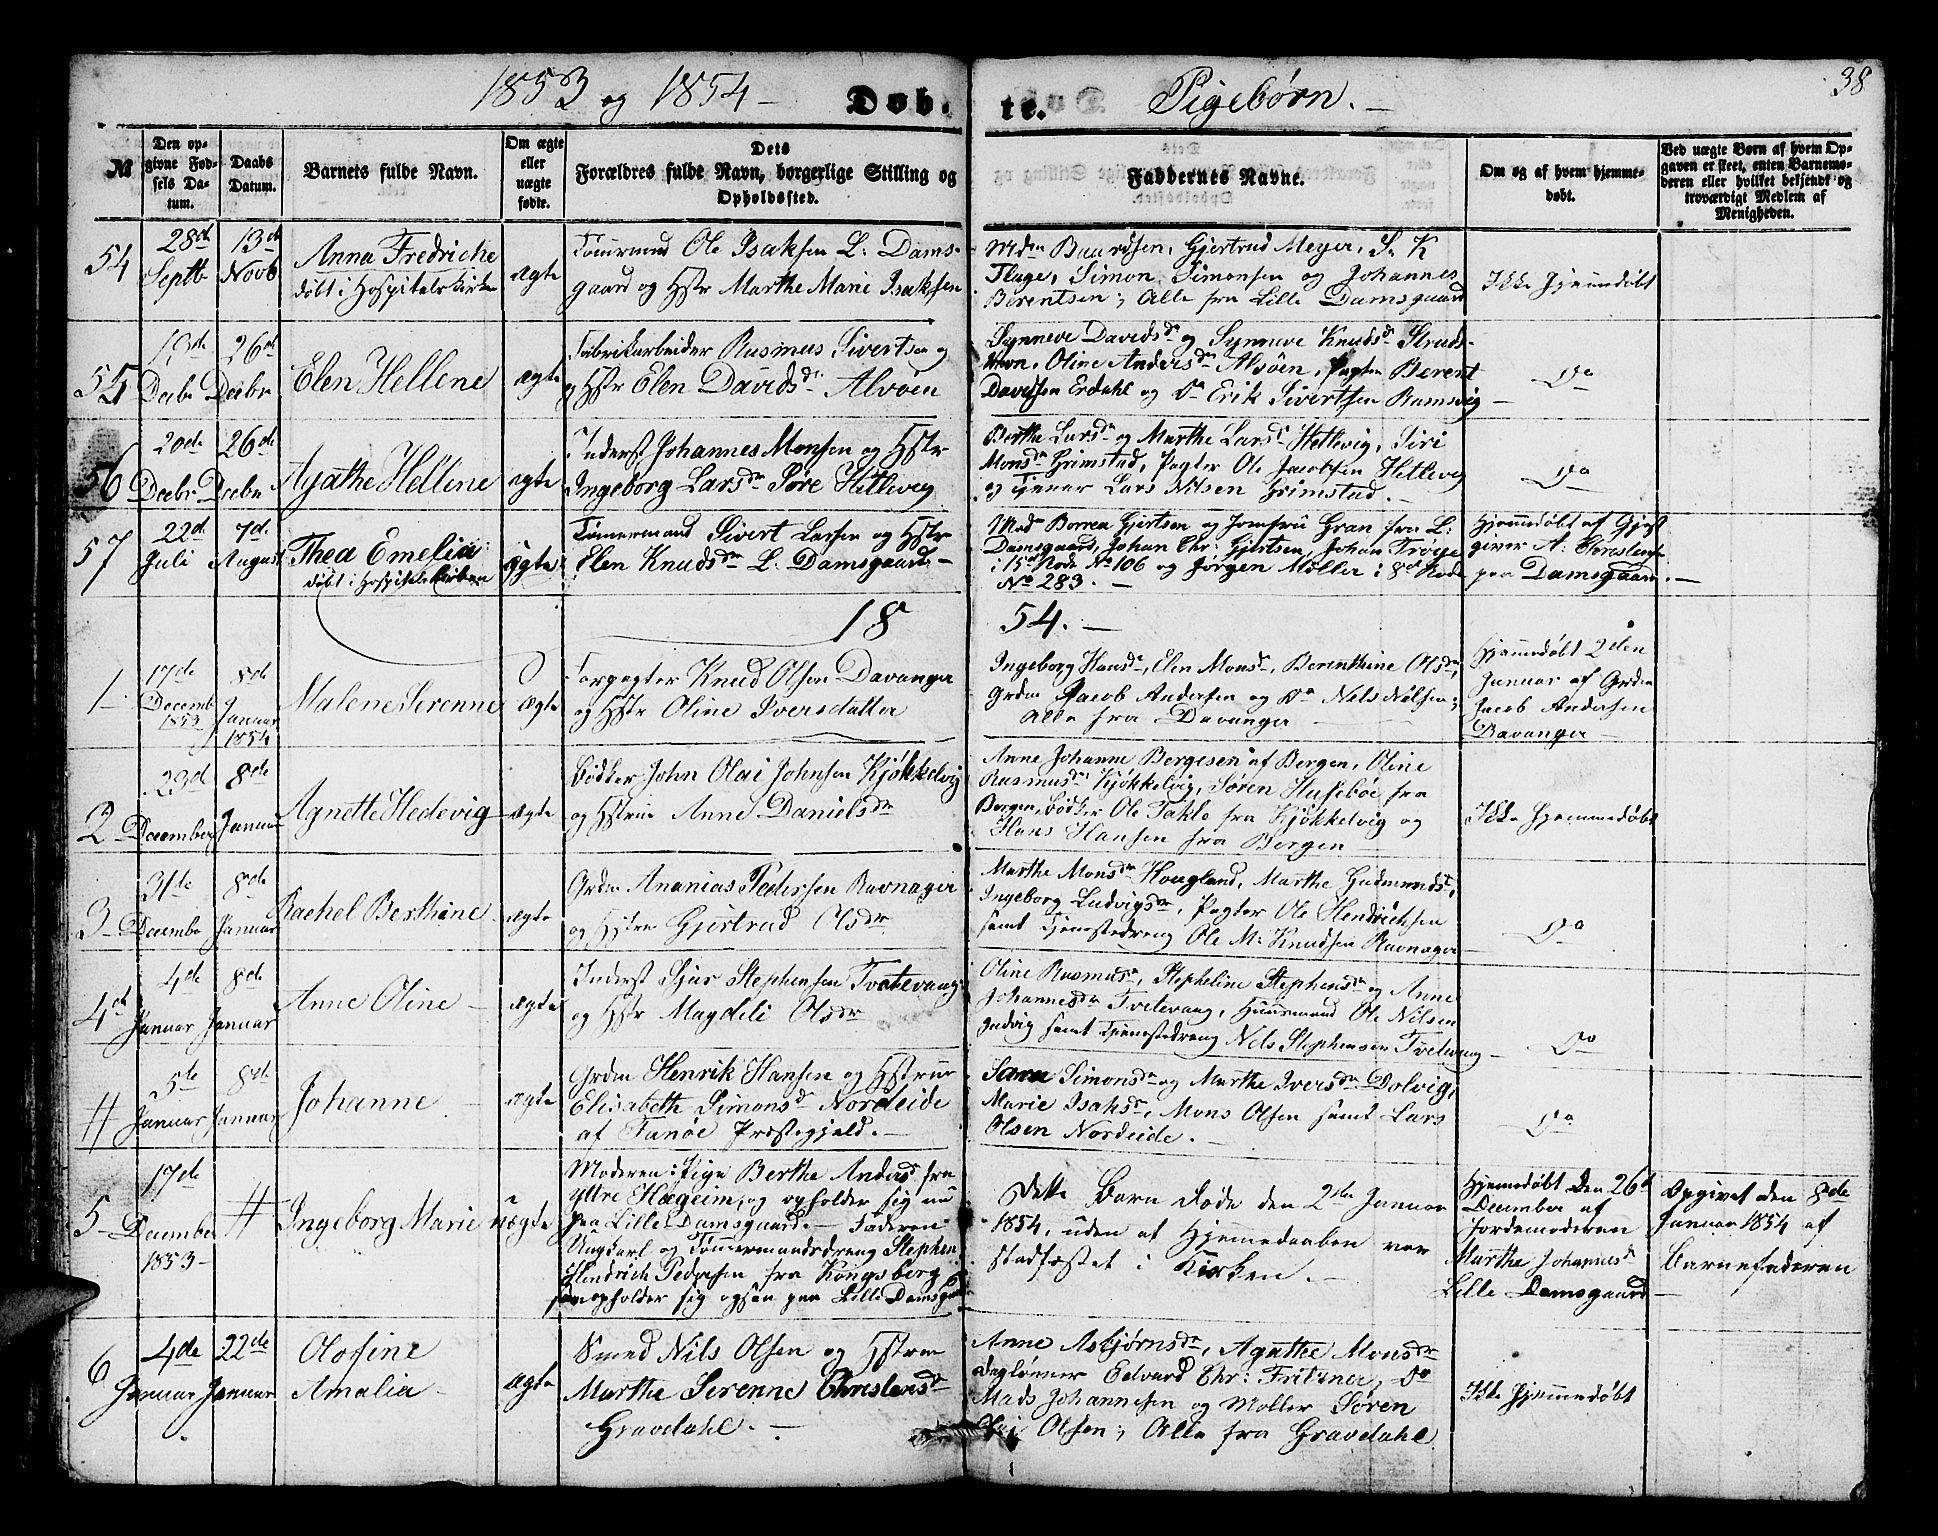 1853 og 1854 — Døb. te. Pigebørn. —
38
№
Den op-
givne Fød-
sels Da-
tum.
Daabs
Datum.
Barnets fulde Navn.
Om ægte
eller
uægte
fødte.
Dets
Forældres fulde Navn, borgerlige Stilling og
Opholdssted.
Faddernes Navne.
Om og af hvem hjemme-
døbt.
Ved uægte Børn af hvem Op-
gaven er skeet, enten Barnemo-
deren eller hvilket bekjendt og
troværdigt Medlem af
Menigheden.
54
28de
Septb
13de
Novb
Anna Fredriche
døbt i Hospitalskirken
ægte
Tømrmnd Ole Isaksen L. Dams-
gaard og Hstr Marthe Marie Isaksen
Mdm Baardsen, Gjertrud Meyer, S. K
Flage, Simon Simonsen og Johannes
Berentsen; Alle fra Lille Damsgaard
Ikke hjemmedøbt
55
19de
Decbr
26de
Decbr
Elen Hellene
ægte
Fabrikarbeider Rasmus Sivertsen og
Hstr Elen Davidsdr Alvøen
Synneve Davidsdr og Synneve Knudsdr Struds-
havn, Oline Andersdr Alvøen, Pagter Berent
Davidsen Erdahl og Do Erik Sivertsen Ramsvig
Do
56
20de
Decbr
26de
Decbr
Agathe Hellene
ægte
Inderst Johannes Monsen og Hstr
Ingeborg Larsdr Søre Hetlevig
Berthe Larsdr og Marthe Larsdr Hetlevig, Siri
Monsdr Grimstad, Pagter Ole Jacobsen Hetlevig
og Tjener Lars Nilsen Grimstad. —
Do
57
22de
Juli
7de
August
Thea Emelia
døbt i Hospitalskirken
ægte
Tømermand Sivert Larsen og Hstr
Elen Knudsdr L. Damsgaard. —
Mad. Borren Gjertsen og Jomfru Gran fra L:
Damsgaard, Johan Chr: Gjertsen, Johan Troye
i 15de Rode No 106 og Jørgen Møller i 8de Rode
No 283. —
Hjemmedøbt af Gjest
giver A: Christensen
paa Damsgaard. —
18 54. —
1
17de
Decemb
1853
8de
Januar
1854
Malene Serenne
Ægte
Forpagter Knud Olsen Davanger
og Hstr Oline Iversdatter
Ingeborg Hansdr, Elen Monsdr, Berenthine Olsdr,
Grdm Jacob Andersen og Do Nels Nilsen;
Alle fra Davanger
Hjemmedøbt 2den
Januar af Grdm
Jacob Andersen
Davanger
2
23de
December
8de
Januar
Agnette Hedevig
ægte
Bødker John Olai Johnsen Kjøkkelvig
og Hstrue Anne Danielsdr
Anne Johanne Bergesen af Bergen, Oline
Rasmusdr Kjøkkelvig, Søren Husebøe fra
Bergen, Bødker Ole Takle fra Kjøkkelvig og
Hans Hansen fra Bergen
Ikke hjemmedøbt
3
31te
Decembr
8de
Januar
Rachel Berthine
ægte
Grdm Ananias Pedersen Ravnager
og Hstr Gjertrud Olsdr
Marthe Monsdr Hougland, Marthe Gudmundsdr,
Ingeborg Ludvigsdr, Pagter Ole Hendrichsen
samt Tjenestedreng Ole M: Knudsen Ravnager
Do
4de
4de
Januar
8de
Januar
Anne Oline
ægte
Inderst Sjur Stephensen Tvetevaag
og Hstr Magdeli Olsdr
Oline Rasmusdr, Stepheline Stephensdr og Anne
Johannesdr Tvetevaag, Huusmand Ole Nilsen
Indvig samt Tjenestedreng Nels Stephensen Tvetevaag
Do
#
5te
Januar
8de
Januar
Johanne
ægte
Grdm Henrik Hansen og Hstrue
Elisabeth Simonsdr Nordeide
af Fanøe Præstegjeld. —
Sara Simonsdr og Marthe Iversdr Dolvig,
Marie Isaksdr, Mons Olsen samt Lars
Olsen Nordeide. —
Do
5
17de
December
1853
#
Ingeborg Marie
uægte
Moderen: Pige Berthe Andersd fra
yttre Hægeim, og opholder sig nu
paa Lille Damsgaard. — Faderen
Ungkarl og Tømmermandsdreng Stephen
Hendrich Pedersen fra Kongsberg
som opholder sig ogsaa paa Lille Damsgd
Dette Barn døde den 2den Januar
1854, uden at Hjemmedaaben var
stadfæstet i Kirken. —
Hjemmedøbt den 26d
December af
Jordemoderen
Marthe Johannesd
Lille Damsgaard
Opgivet den 8de
Januar 1854 af
Barnefaderen
6
4de
Januar
22de
Januar
Olosine
Amalia
ægte
Smed Nils Olsen og Hstrue
Marthe Serenne Christensdr
Gravdahl. —
Anne Asbjørnsdr, Agathe Monsdr
Daglønner Edvard Chr: Fritzner, Do
Mads Johannesen og Møller Søren
Olai Olsen; Alle fra Gravdahl
Ikke hjemmedøbt